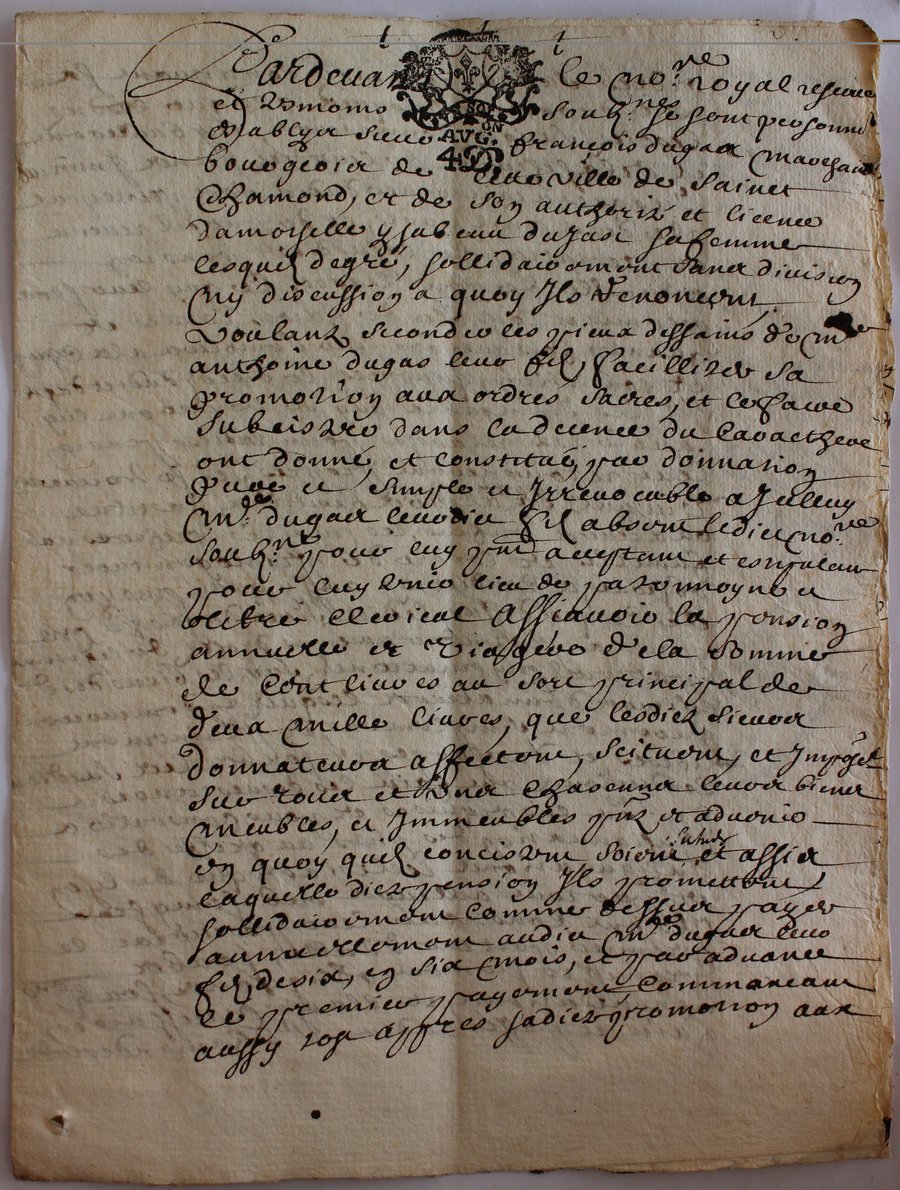 Pardevant le no.re royal reservé
et tesmoins soub.nés se sont personne
establys sieur françois dugas marchand
bourgeois de ceste ville de Sainct
Chamond, et de son authorité et licence
damoiselle ysabeau dujast sa femme
lesquels de gré, sollidairement sans division
ny discussion a quoy Ils renoncent
Voulant seconder les pieux dessains de m.re
anthoine dugas leur fils, faciliter sa
promotion aux ordres sacres, et le faire
Subcister dans la decence du caracthere
ont donné, et constitué, par donnation
pure et simple et Irrevocable a Icelluy
m.re dugas leurdit fils absent ledit no.re
soub.né pour luy pnt acceptant et stipulant
pour luy tenir lieu de patrimoyne et
tiltre clerical Assavoir la pension
annuelle et Viagere de la Somme
de Cent livres au sort principal de
deux mille livres, que lesdits sieurs
donnateurs affectent, scituent, et Imposent
Sur tous et uns chascuns leurs biens
meubles, et Immeubles pnts et advenir
en quoy quils concistent soient situés et assis
laquelle dite pension Ils promettent
sollidairement comme dessus payer
annuellement audit m.re dugas leur
fils de six, en six mois, et par advance
le premier payement commancant
aussy tost appres sadite promotion aux